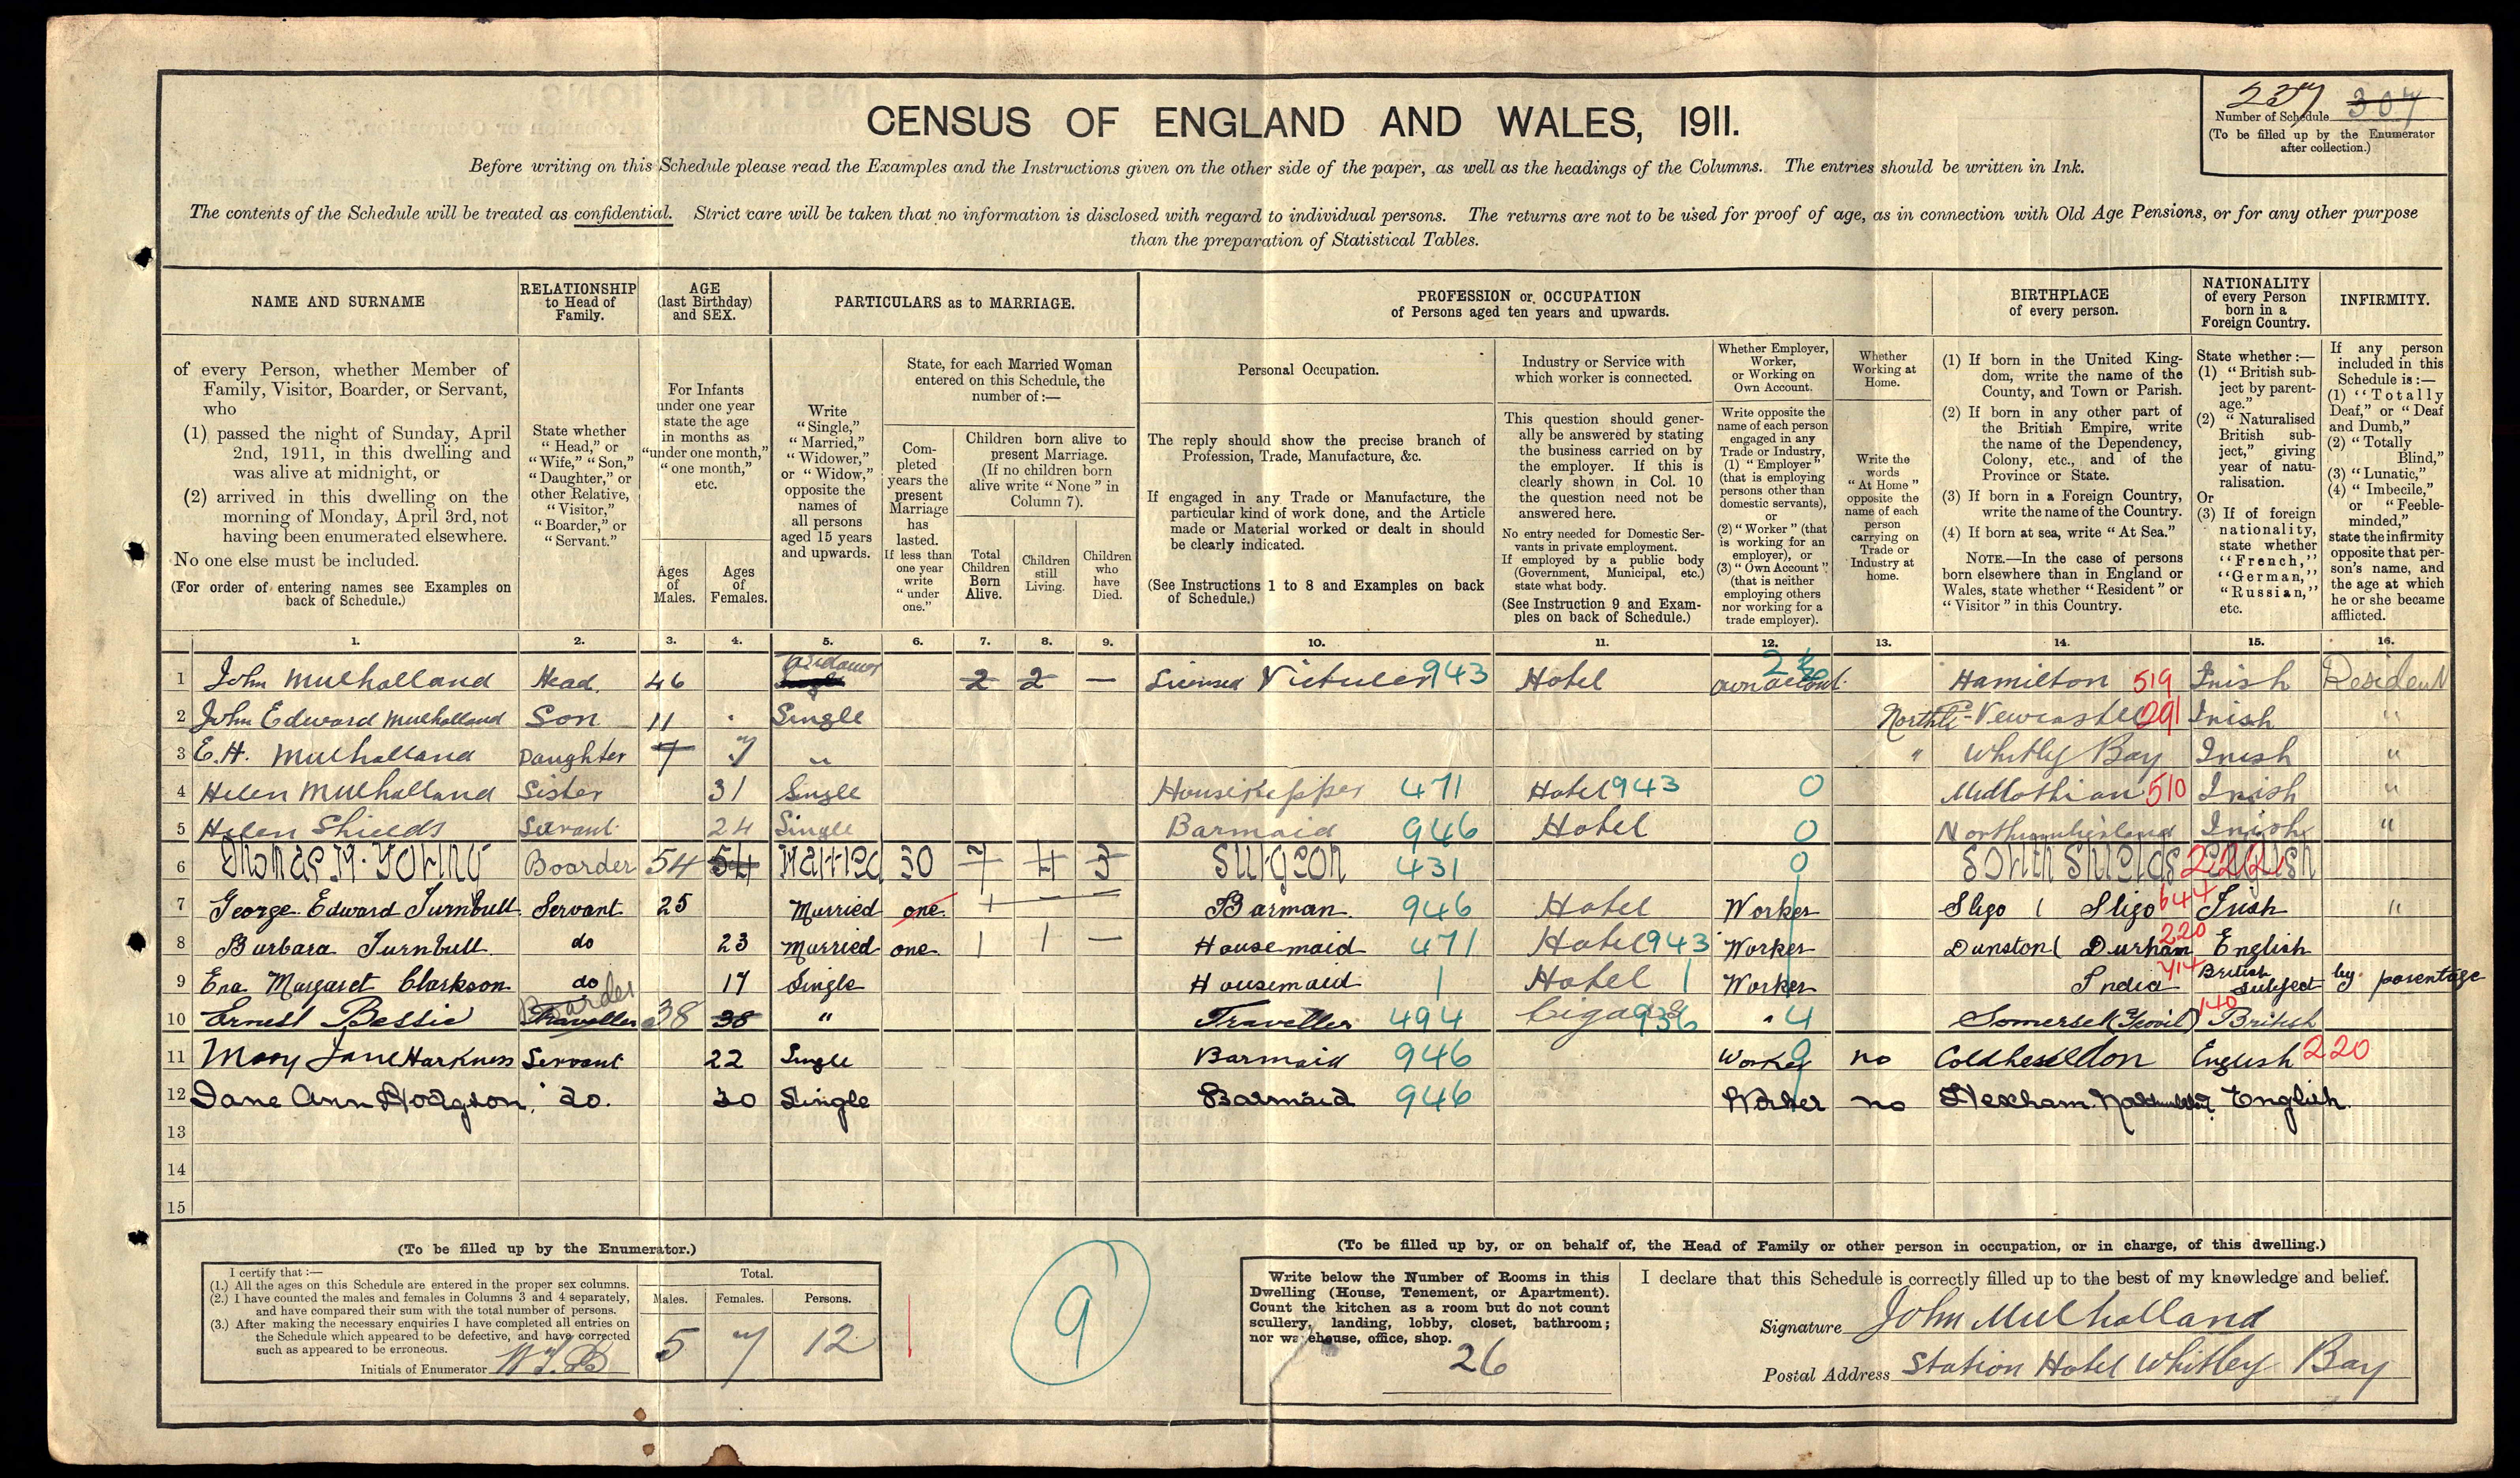 237
Number of Schedule 307
(To be filled up by the Enumerator
after collection.)
CENSUS OF ENGLAND AND WALES, 1911.
Before writing on this Schedule please read the Examples and the Instructions given on the other side of the paper, as well as the headings of the Columns. The entries should be written in Ink.
The contents of the Schedule will be treated as confidential. Strict care will be taken that no information is disclosed with regard to individual persons. The returns are not to be used for proof of age, as in connection with Old Age Pensions, or for any other purpose
than the preparation of Statistical Tables.
NAME AND SURNAME
of every Person, whether Member of
Family, Visitor, Boarder, or Servant,
who
(1) passed the night of Sunday, April
2nd, 1911, in this dwelling and
was alive at midnight, or
(2) arrived in this dwelling on the
morning of Monday, April 3rd, not
having been enumerated elsewhere.
No one else must be included.
(For order of entering names see Examples on
back of Schedule.)
RELATIONSHIP
to Head of
Family.
State whether
"Head," or
"Wife," "Son,"
"Daughter," or
other Relative,
"Visitor,"
"Boarder," or
"Servant."
AGE
(last Birthday)
and SEX.
For Infants
under one year
state the age
in months as
"under one month,"
"one month,"
etc.
Ages
of
Males.
Ages
of
Females.
PARTICULARS as to MARRIAGE.
Write
"Single,"
"Married,"
"Widower,"
or "Widow,"
opposite the
names of
all persons
aged 15 years
and upwards.
State, for each Married Woman
entered on this Schedule, the
number of:—
Com-
pleted
years the
present
Marriage
has
lasted.
If less than
one year
write
"under
one."
Children born alive to
present Marriage.
(If no children born
alive write "None" in
Column 7).
Total
Children
Born
Alive.
Children
still
Living.
Children
who
have
Died.
PROFESSION or OCCUPATION
of Persons aged ten years and upwards.
Personal Occupation.
The reply should show the precise branch of
Profession, Trade, Manufacture, &c.
If engaged in any Trade or Manufacture, the
particular kind of work done, and the Article
made or Material worked or dealt in should
be clearly indicated.
(See Instructions 1 to 8 and Examples on back
of Schedule.)
Industry or Service with
which worker is connected.
This question should gener-
ally be answered by stating
the business carried on by
the employer. If this is
clearly shown in Col. 10
the question need not be
answered here.
No entry needed for Domestic Ser-
vants in private employment.
If employed by a public body
(Government, Municipal, etc.)
state what body.
(See Instruction 9 and Exam-
ples on back of Schedule.)
Whether Employer,
Worker,
or Working on
Own Account.
Write opposite the
name of each person
engaged in any
Trade or Industry,
(1) "Employer"
(that is employing
persons other than
domestic servants),
or
(2) "Worker" (that
is working for an
employer), or
(3) "Own Account"
(that is neither
employing others
nor working for a
trade employer).
Whether
Working at
Home.
Write the
words
"At Home"
opposite the
name of each
person
carrying on
Trade or
Industry at
home.
BIRTHPLACE
of every person.
(1) If born in the United King-
dom, write the name of the
County, and Town or Parish.
(2) If born in any other part of
the British Empire, write
the name of the Dependency,
Colony, etc., and of the
Province or State.
(3) If born in a Foreign Country,
write the name of the Country.
(4) If born at sea, write "At Sea."
NOTE.—In the case of persons
born elsewhere than in England or
Wales, state whether "Resident" or
"Visitor" in this Country.
NATIONALITY
of every Person
born in a
Foreign Country.
State whether:—
(1) "British sub-
ject by parent-
age."
(2) "Naturalised
British sub-
ject," giving
year of natu-
ralisation.
Or
(3) If of foreign
nationality,
state whether
"French,"
"German,"
"Russian,"
etc.
INFIRMITY.
If any person
included in this
Schedule is:—
(1) "Totally
Deaf," or "Deaf
and Dumb,"
(2) "Totally
Blind,"
(3) "Lunatic,"
(4) "Imbecile,"
or "Feeble-
minded,"
state the infirmity
opposite that per-
son's name, and
the age at which
he or she became
afflicted.
1. 2. 3. 4. 5. 6. 7. 8. 9. 10. 11. 12. 13. 14. 15. 16.
1 John Mulholland Head. 46 Widower 2 2 — Licensed Victuler 943 Hotel own account Hamilton 519 Irish Resident
2 John Edward Mulholland Son 11 Single Newcastle 291 Irish "
3 E.H. Mulholland Daughter 7 7 " " Whitly Bay Irish "
4 Helen Mulholland Sister 31 Single Housekepper 471 Hotel 943 0 Midlothian 510 Irish "
5 Helen Shields Servant 24 Single Barmaid 946 Hotel 0 Northumberland Irish "
6 Thomas M. Young Boarder 54 54 Married 30 7 4 3 Surgeon 431 0 South Shields 222 English
7 George Edward Turnbull Servant 25 Married one 1 — — Barman. 946 Hotel Worker Sligo ( Sligo 644 Irish "
8 Barbara Turnbull do 23 Married one 1 1 — Housemaid 471 Hotel 943 Worker Dunston ( Durham 220 English
9 Ena Margaret Clarkson do 17 Single Housemaid Hotel Worker India 714 British subject by parentage
10 Ernest Bessie Traveller Boarder 38 38 " Traveller 494 Cigars 936 " 4 Somerset (Yeovil) 140 British
11 Mary Jane Harkness Servant 22 Single Barmaid 946 Worker 0 no Coldheseldon English 220
12 Jane Ann Hodgson. do. 30 Single Barmaid 946 Worker no Hexham English.
13
14
15
(To be filled up by the Enumerator.)
I certify that:—
(1.) All the ages on this Schedule are entered in the proper sex columns.
(2.) I have counted the males and females in Columns 3 and 4 separately,
and have compared their sum with the total number of persons.
(3.) After making the necessary enquiries I have completed all entries on
the Schedule which appeared to be defective, and have corrected
such as appeared to be erroneous.
Initials of Enumerator
Total.
Males. Females. Persons.
5 7 12
9
(To be filled up by, or on behalf of, the Head of Family or other person in occupation, or in charge, of this dwelling.)
Write below the Number of Rooms in this
Dwelling (House, Tenement, or Apartment).
Count the kitchen as a room but do not count
scullery, landing, lobby, closet, bathroom;
nor warehouse, office, shop.
26
I declare that this Schedule is correctly filled up to the best of my knowledge and belief.
Signature John Mulholland
Postal Address Station Hotel Whitley Bay